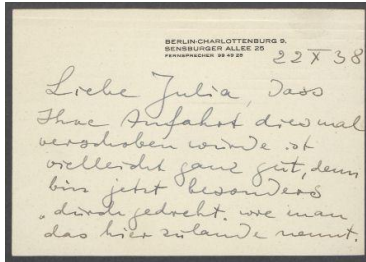 BERLIN-CHARLOTTENBURG 9,
SENSBURGER ALLEE 26
FERNSPRECHER 99 49 25
22 X 38
Liebe Julia, dass
Ihre Anfahrt diesmal
verschoben wurde ist
vielleicht ganz gut, denn
bin jetzt besonders
„durchgedreht. wie man
das hier zulande nennt.